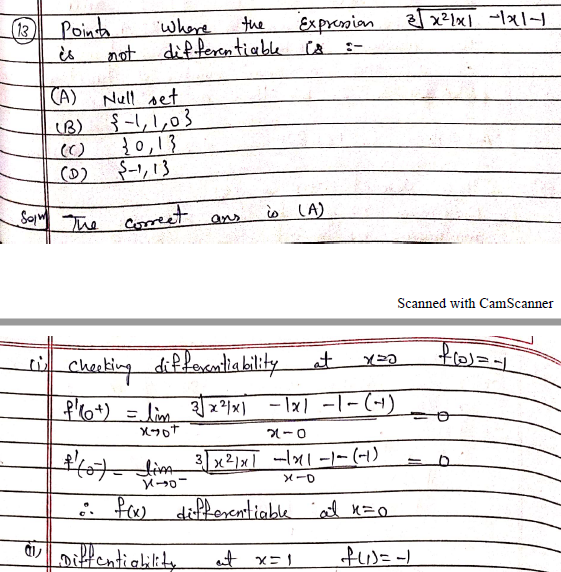 (13) Points where the Expression ∛x²|x| -|x|-1
is not differentiable is :-
(A) Null set
(B) {-1, 1, 0}
(C) {0, 1}
(D) {-1, 1}
Solⁿ The correct ans is (A)
Scanned with CamScanner
(i) checking differentiability at x=0 f(0)=-1
f'(0⁺) = lim x→0⁺ (∛x²|x| -|x| -1-(-1))/(x-0) = 0
f'(0⁻) = lim x→0⁻ (∛x²|x| -|x| -1-(-1))/(x-0) = 0
∴ f(x) differentiable at x=0
(ii) Diffentiability at x=1 f(1)=-1